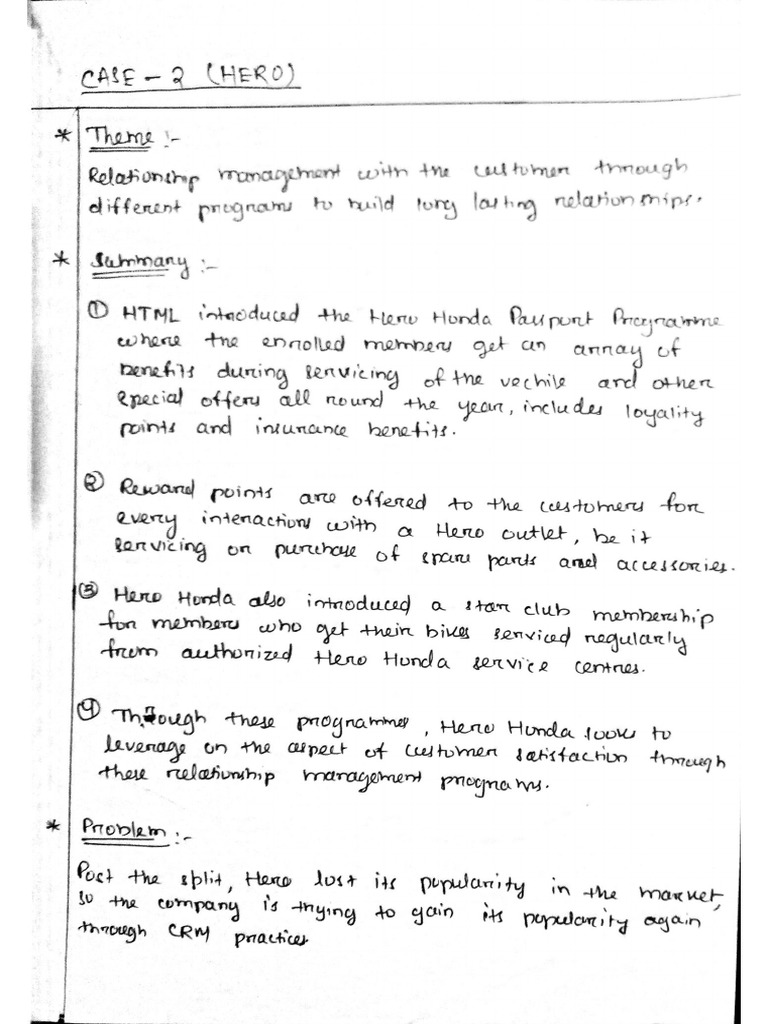 CASE - 2 (HERO)
* Theme :-
Relationship management with the customer through
different programs to build long lasting relationships.
* Summary :-
① HTML introduced the Hero Honda Passport Programme
where the enrolled members get an array of
benefits during servicing of the vechile and other
special offers all round the year, includes loyality
points and insurance benefits.
② Reward points are offered to the customers for
every interaction with a Hero outlet, be it
servicing or purchase of spare parts and accessories.
③ Hero Honda also introduced a star club membership
for members who get their bikes serviced regularly
from authorized Hero Honda service centres.
④ Through these programmes, Hero Honda looks to
leverage on the aspect of customer satisfaction through
these relationship management programs.
* Problem :-
Post the split, Hero lost its popularity in the market,
so the company is trying to gain its popularity again
through CRM practices